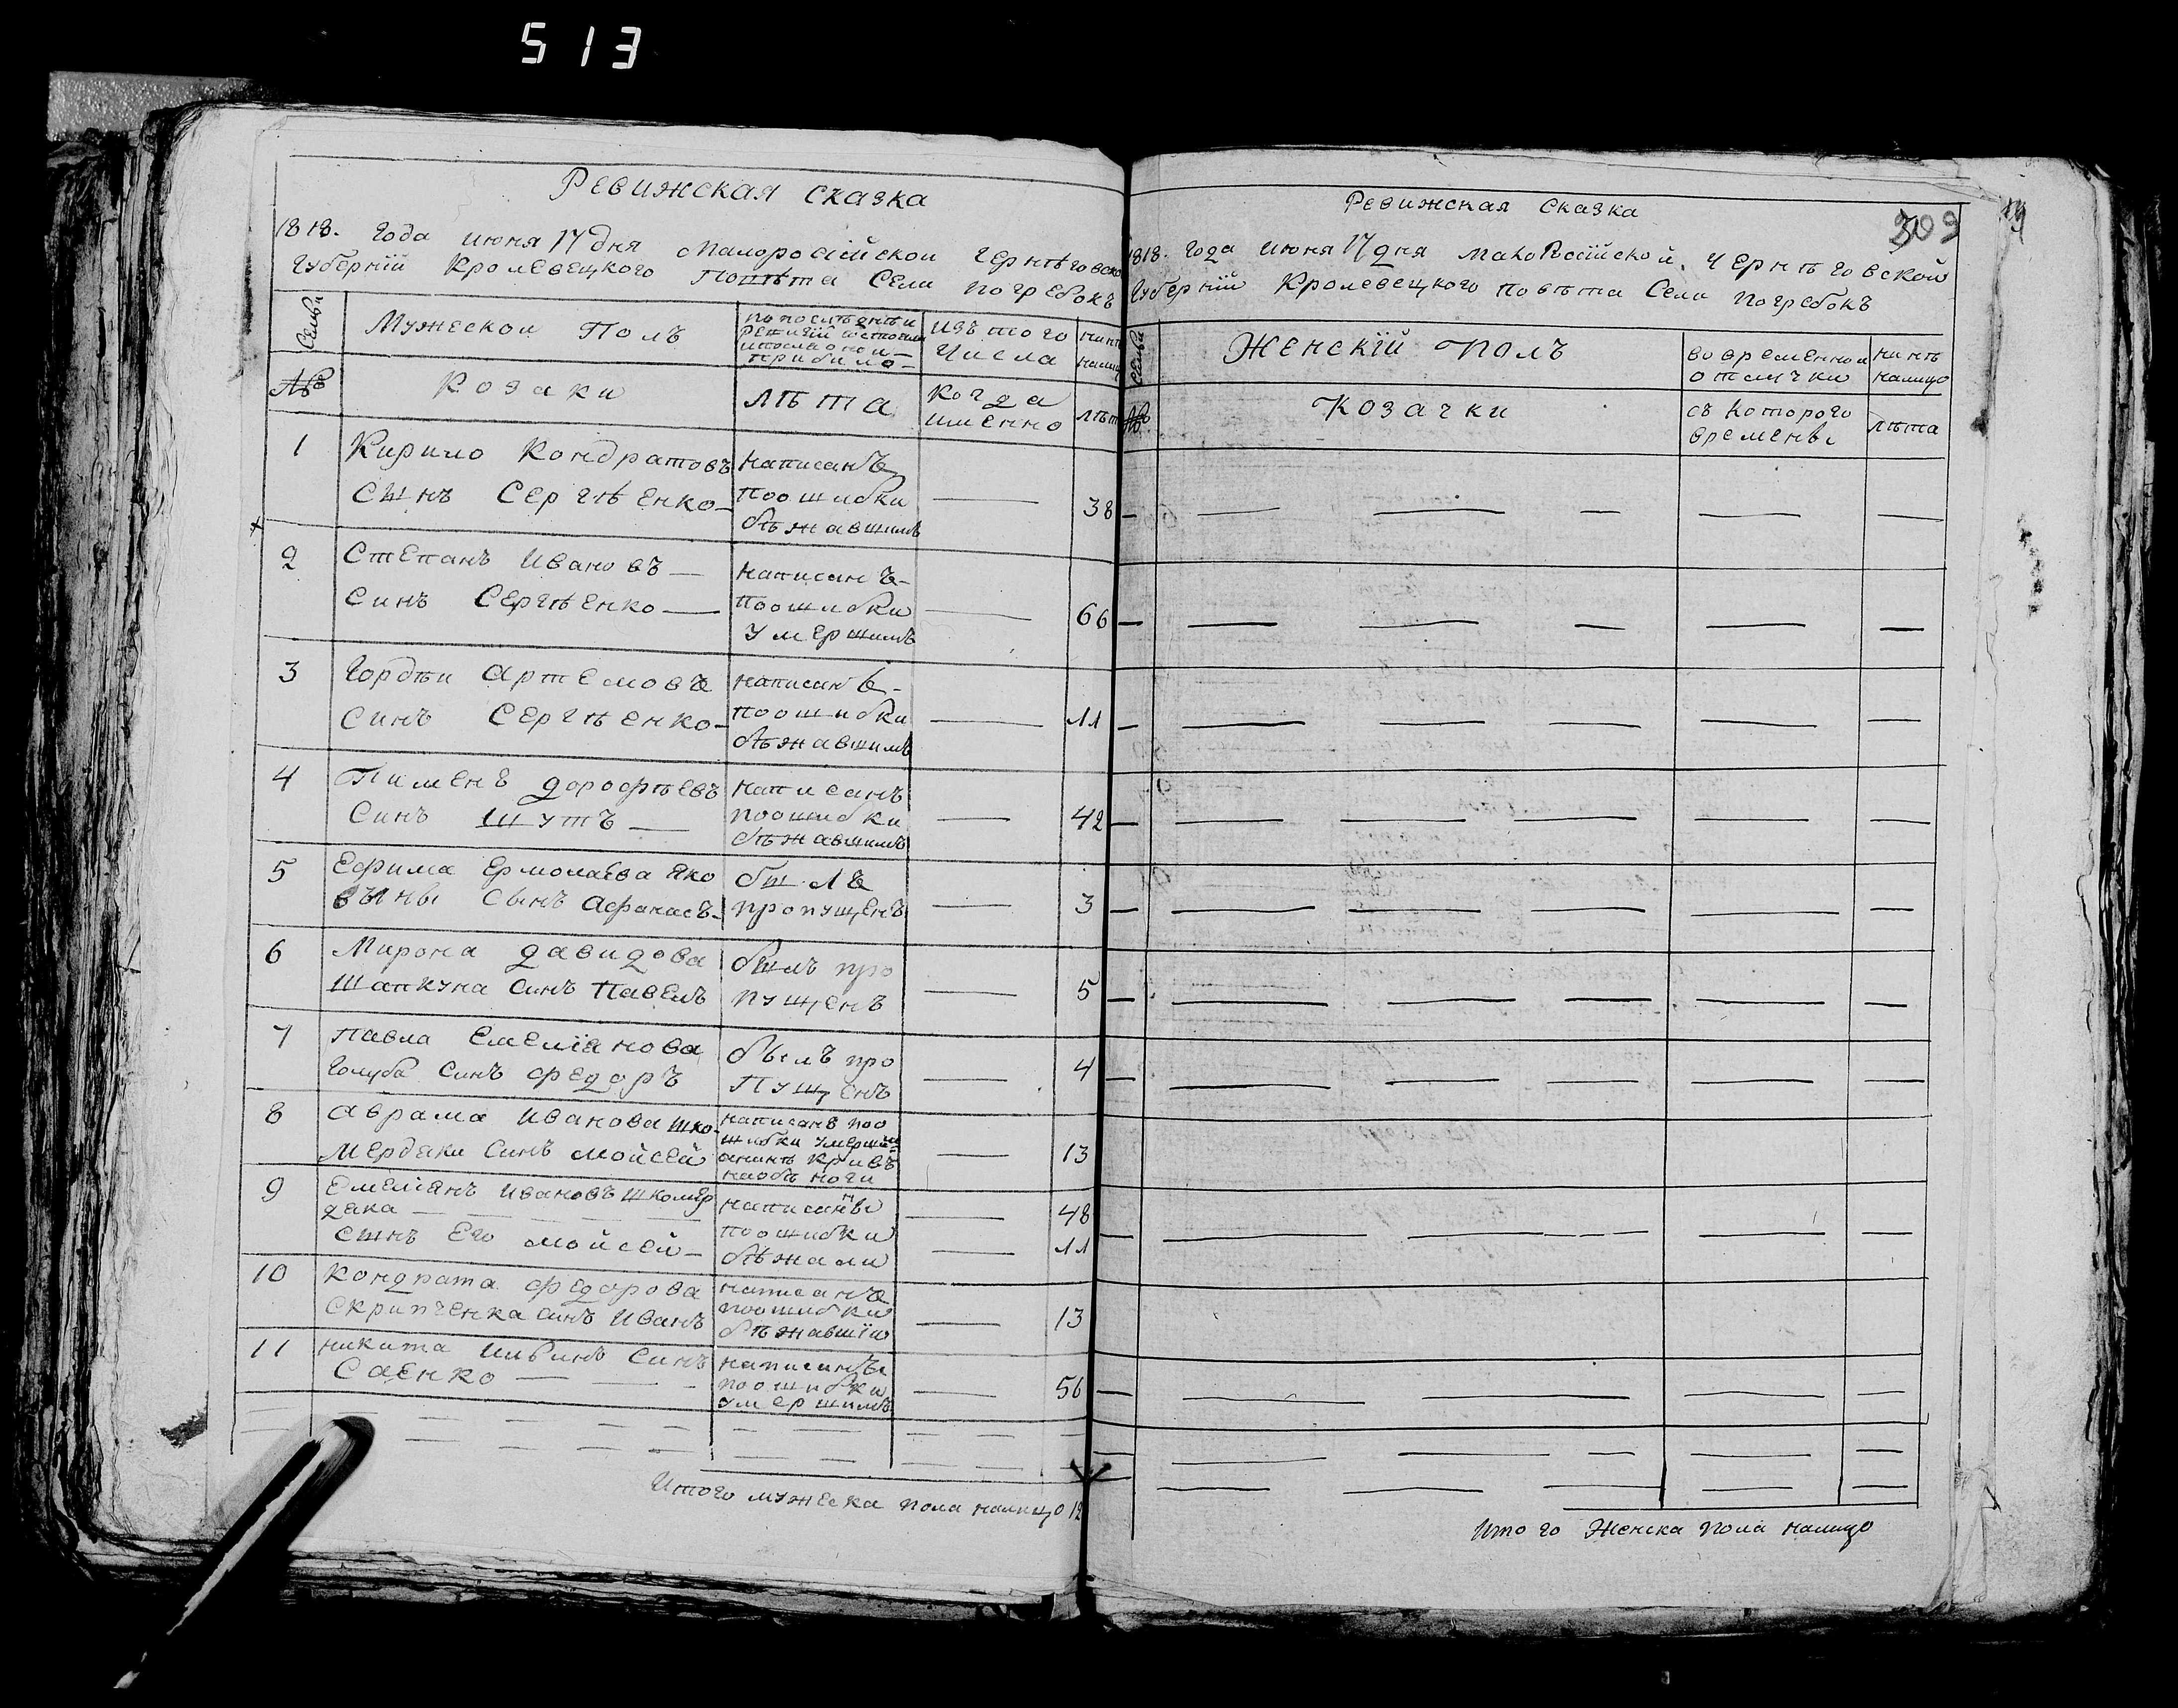 513
Ревижская сказка
1818. Года июня 17 дня Малоросійской Чернѣговско
Губерніи Кролевецкого Повѣта Села Погребокъ
Семьи
Мужеской Полъ
По последнѣи
Ревизіи состояло
ипосла оной
прибило
Изъ того
Числа
нинѣ
налиц
№
Козаки
Лѣта
Когда
именно
лѣт
1
Кирило Кондратовъ
Сынъ Сергѣенко
написанъ
поошибки
бѣжавшимъ
38
2
Степанъ Ивановъ
Синъ Сергѣенко
написанъ
поошибки
умершимъ
66
3
Гордѣи Артемовъ
Синъ Сергѣенко
написанъ
поошибки
бѣжавшимъ
11
4
Пименъ Дорофѣевъ
Синъ Шутъ
написанъ
поошибки
бѣжавшимъ
42
5
Ефима Ермолаева Яко
вины Сынъ Афанасъ
былъ
пропущенъ
3
6
Мирона Давидова
Шапкуна Синъ Павелъ
былъ про
пущенъ
5
7
Павла Емеліянова
Голуба Синъ Федоръ
былъ про
пущенъ
4
8
Аврама Иванова Шко
мердяки Синъ Мойсей
написанъ поо
шибки умершим
анинѣ кривъ
наобѣ ноги
13
9
Емеліянъ Ивановъ Шкомер
дяка
Сынъ Его Мойсей
написаны
поошибки
бѣжали
48
11
10
Кондрата Федорова
Скрипченка Синъ Иванъ
написанъ
поошибки
бѣжавшій
13
11
Никита Синъ
Саенко
написанъ
поошибки
умершимъ
56
Итого мужеска пола налицо 12
Ревижская Сказка
309
1818. Года Июня 17 дня Малоросійской Чернѣговской
Губерній Кролевецкого Повѣта Села Погребокъ
Семьи
Женскій Полъ
Во временной
отлучки
нинѣ
налицо
№
Козачки
съ которого
времены
Лѣта
Итого Женска пола налицо